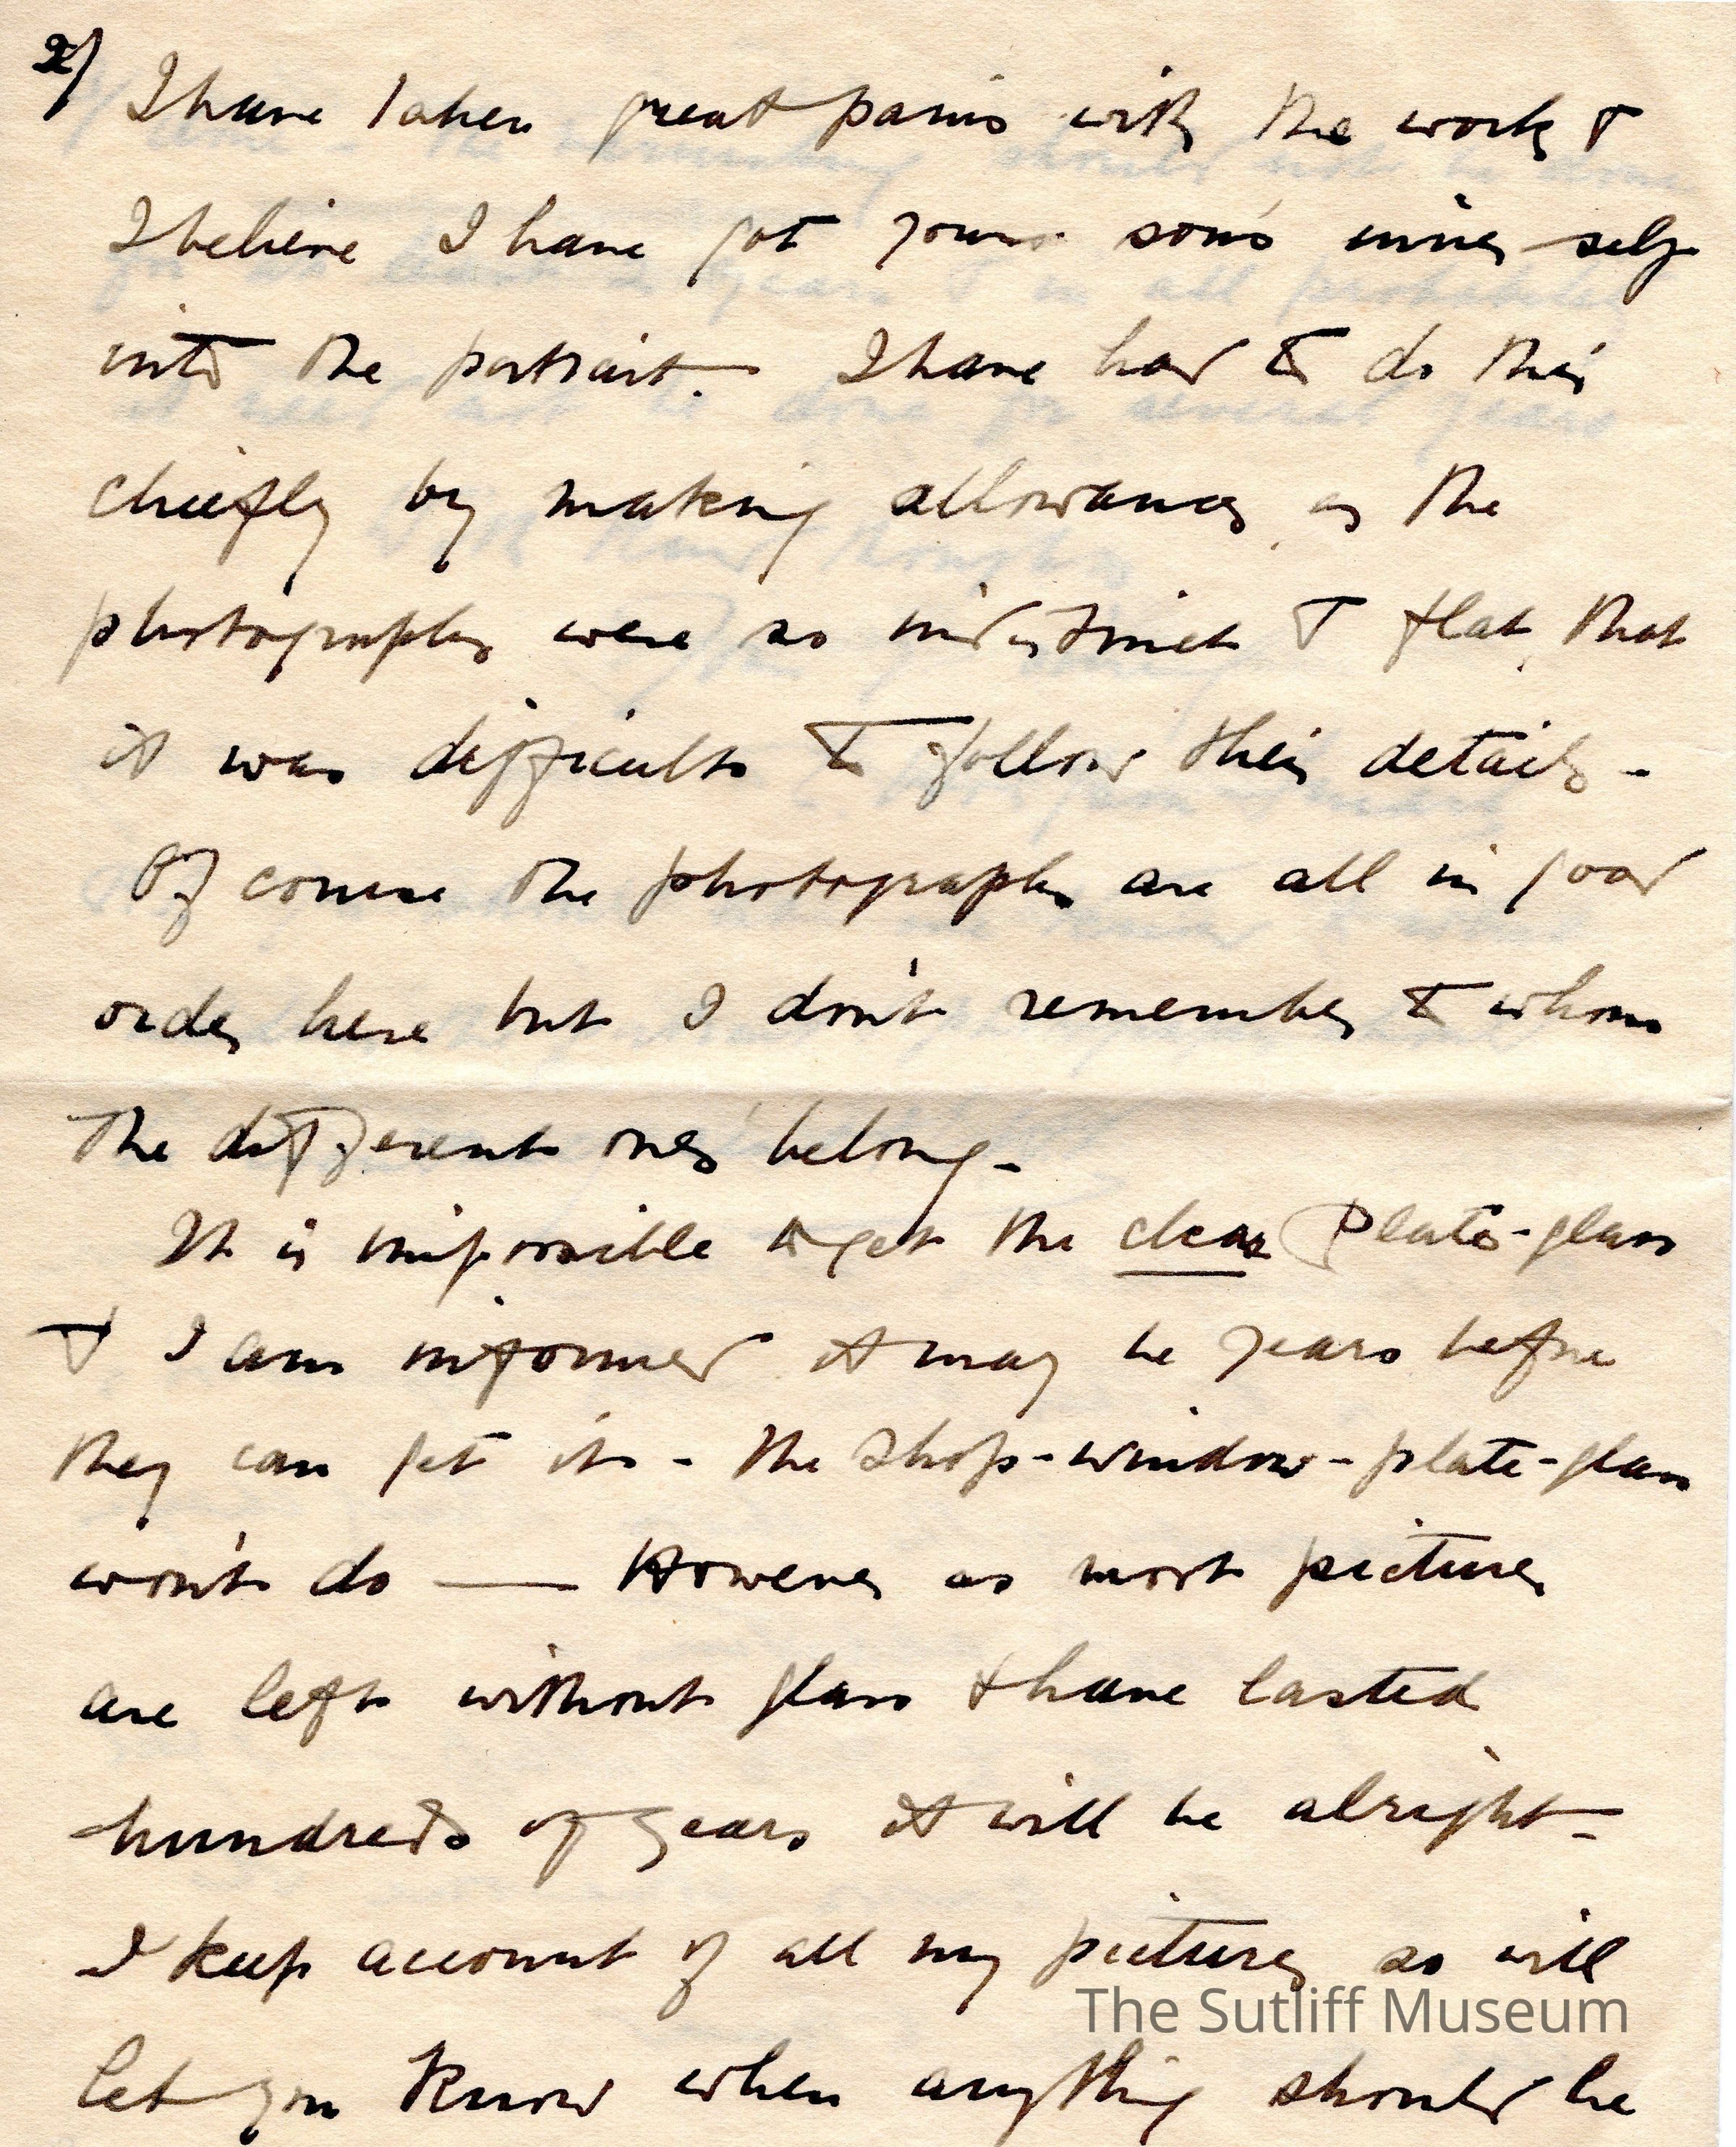 2/ I have taken great pains with the work &
I believe I have got your son's inner self
into the portrait. I have had to do this
chiefly by making allowances, as the
photographs were so indistinct & flat, that
it was difficult to follow their details -
Of course the photographs are all in good
order here but I don't remember to whom
the different ones belong -
It is impossible to get the clear Plate-glass
& I am informed it may be years before
they can get it - The Shop-window-plate-glass
won't do — However as most pictures
are left without glass & have lasted
hundreds of years it will be alright -
I keep account of all my pictures so will
The Sutliff Museum
let you know when anything should be